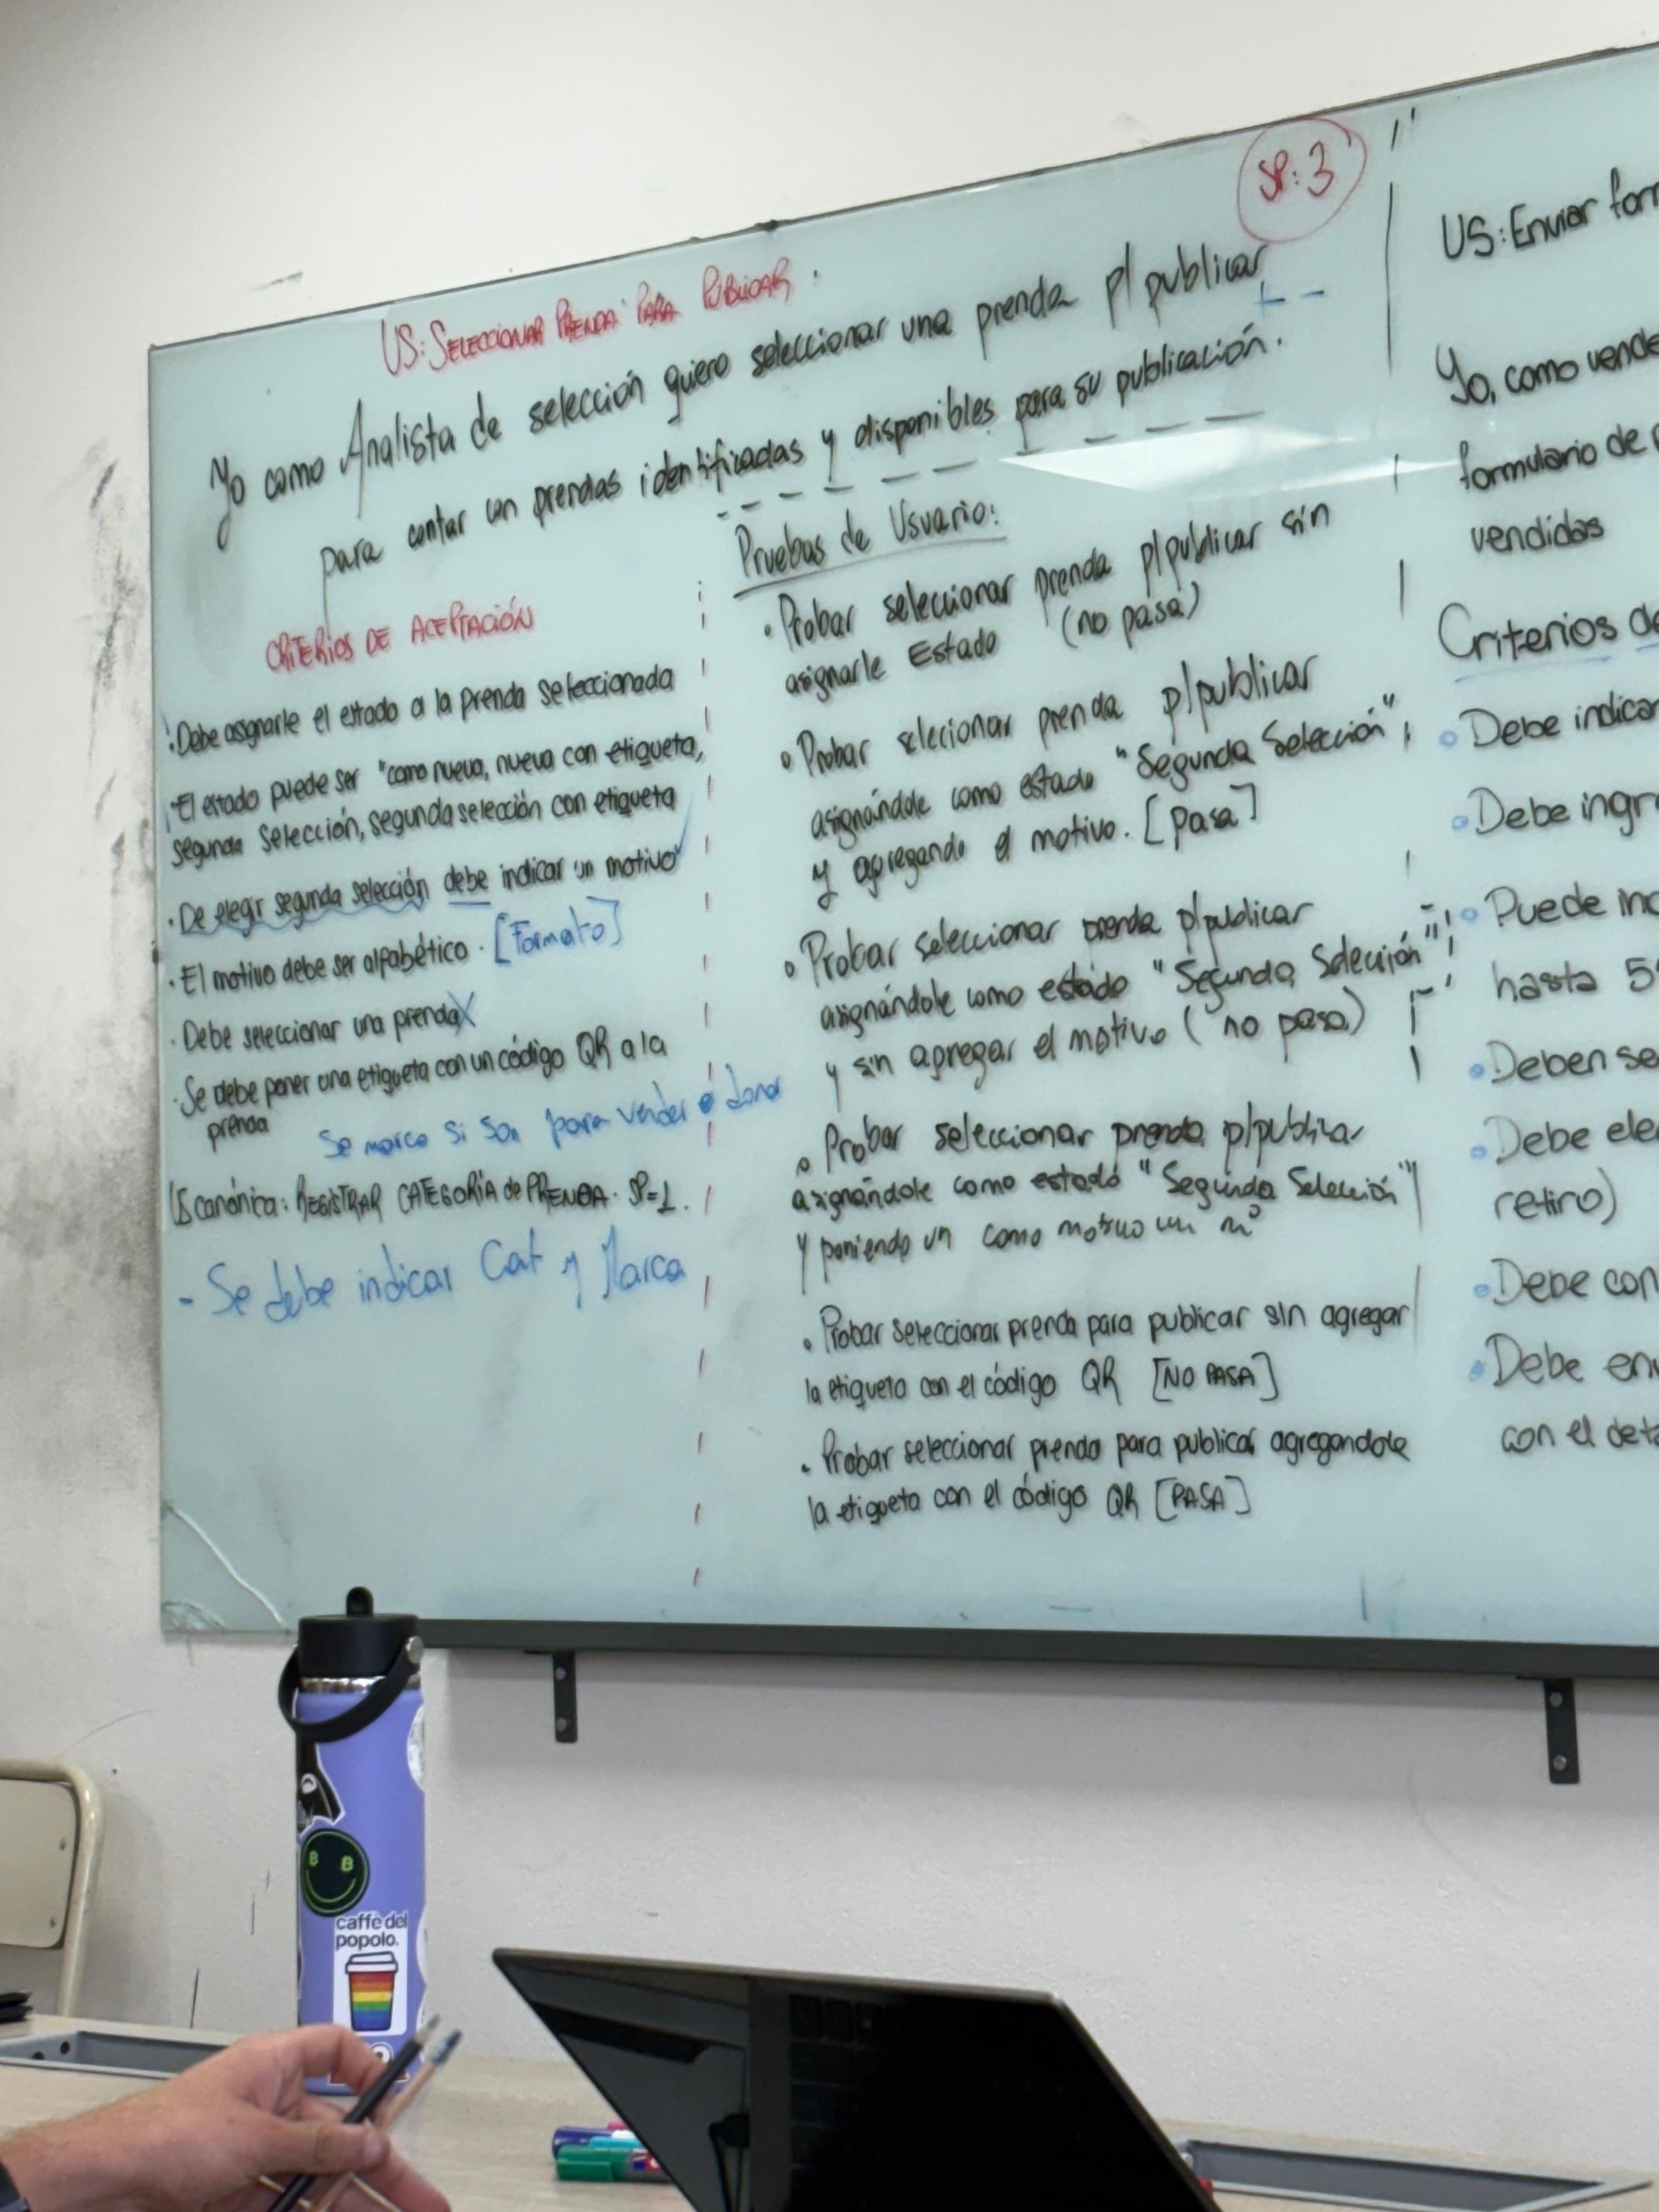 SP: 3
US: SELECCIONAR PRENDA PARA PUBLICAR:
Yo como Analista de selección quiero seleccionar una prenda p/ publicar
+ -
para contar con prendas identificadas y disponibles para su publicación.
CRITERIOS DE ACEPTACIÓN
· Debe asignarle el estado a la prenda seleccionada
· El estado puede ser "como nueva, nueva con etiqueta,
segunda selección, segunda selección con etiqueta
· De elegir segunda selección, debe indicar un motivo
· El motivo debe ser alfabético. [Formato]
· Debe seleccionar una prenda X
· Se debe poner una etiqueta con un código QR a la
prenda
Se marca si son para vender o donar
US canónica: REGISTRAR CATEGORÍA de PRENDA. SP=1.
- Se debe indicar Cat y Marca
Pruebas de Usuario:
· Probar seleccionar prenda p/publicar sin
asignarle Estado (no pasa)
· Probar selecionar prenda p/publicar
asignándole como estado "Segunda Selección",
y agregando el motivo. [pasa]
· Probar seleccionar prenda p/publicar
asignándole como estado "Segunda Selección"
y sin agregar el motivo (no pasa)
· Probar seleccionar prenda p/publicar
asignándole como estado "Segunda Selección"
y poniendo un como motivo un nº
· Probar seleccionar prenda para publicar sin agregar
la etiqueta con el código QR [NO PASA]
· Probar seleccionar prenda para publicar agregandole
la etiqueta con el código QR [PASA]
US: Enviar form
Yo, como vende
formulario de p
vendidas
Criterios de
Debe indicar
Debe ingre
Puede inc
hasta 5
Deben se
Debe ele
retiro)
Debe con
Debe env
con el deta
caffè del
popolo.